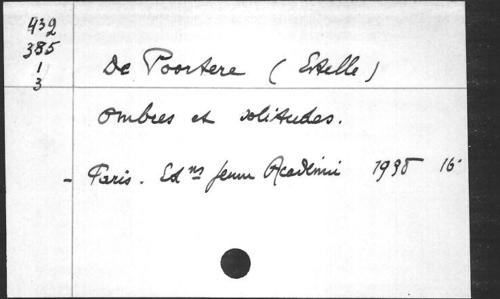 432
385
1
3
De Poortere (Estelle)
Ombres et solitudes.
- Paris. Edns Jeune Académie 1935 16°